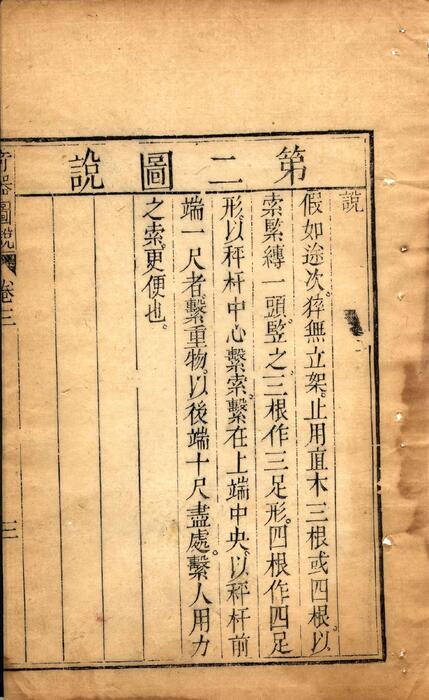 第二圖說
說
假如途次。猝無立架。止用直木三根或四根。以
索緊縛一頭。竪之。三根作三足形。四根作四足
形。以秤杆中心繫索。繫在上端中央。以秤杆前
端一尺者。繫重物。以後端十尺盡處。繫人用力
之索。更便也。
奇器圖說 卷三